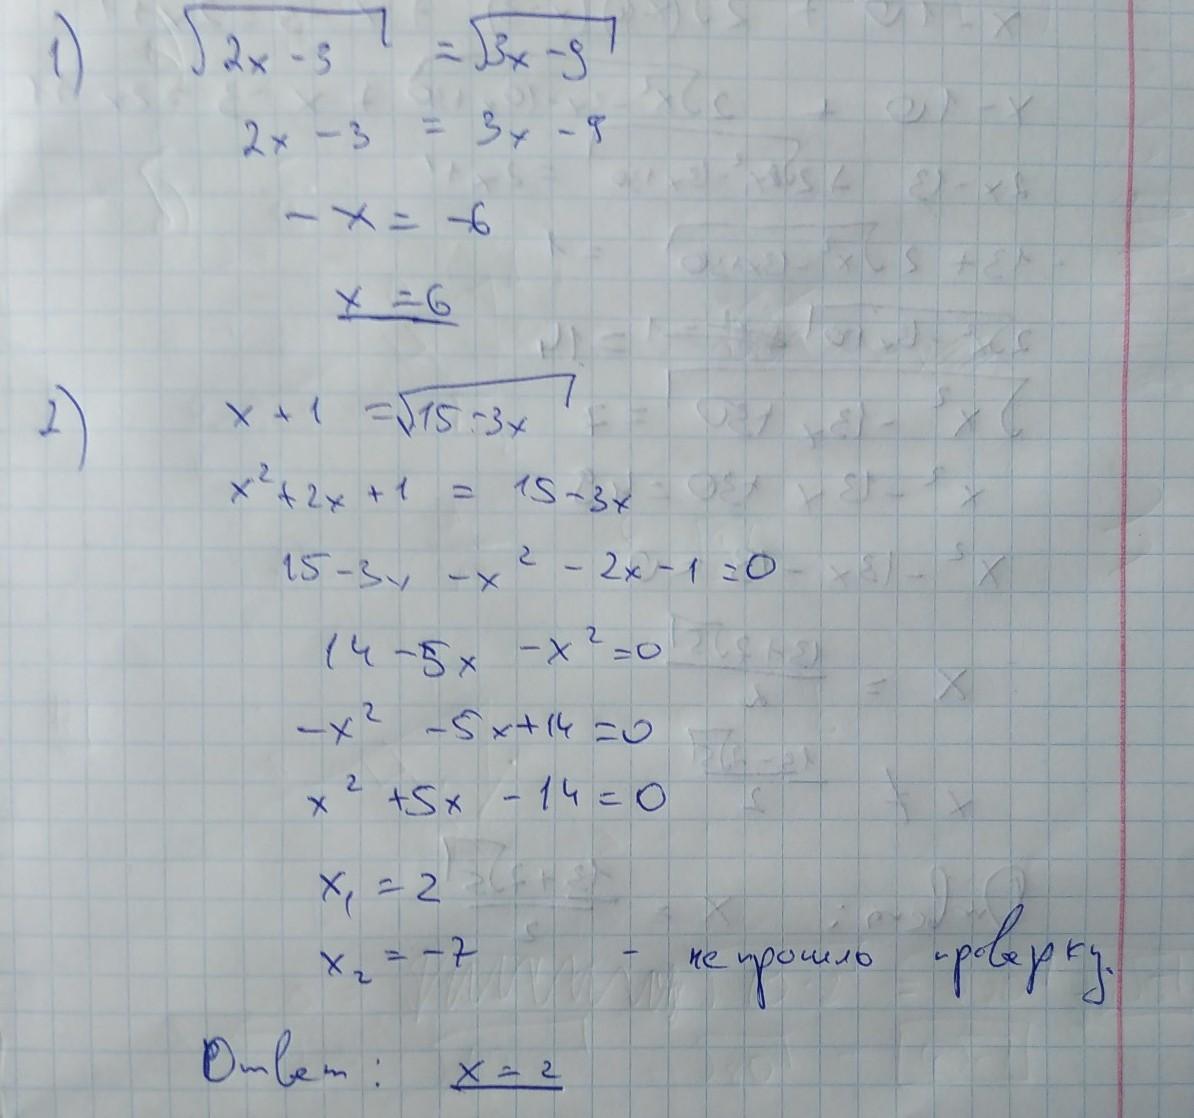 1) √2x - 3 = √3x - 9
2x - 3 = 3x - 9
- x = -6
x = 6
2) x + 1 = √15 - 3x
x² + 2x + 1 = 15 - 3x
15 - 3x - x² - 2x - 1 = 0
14 - 5x - x² = 0
-x² - 5x + 14 = 0
x² + 5x - 14 = 0
x₁ = 2
x₂ = -7 - не прошло проверку.
Ответ: x = 2